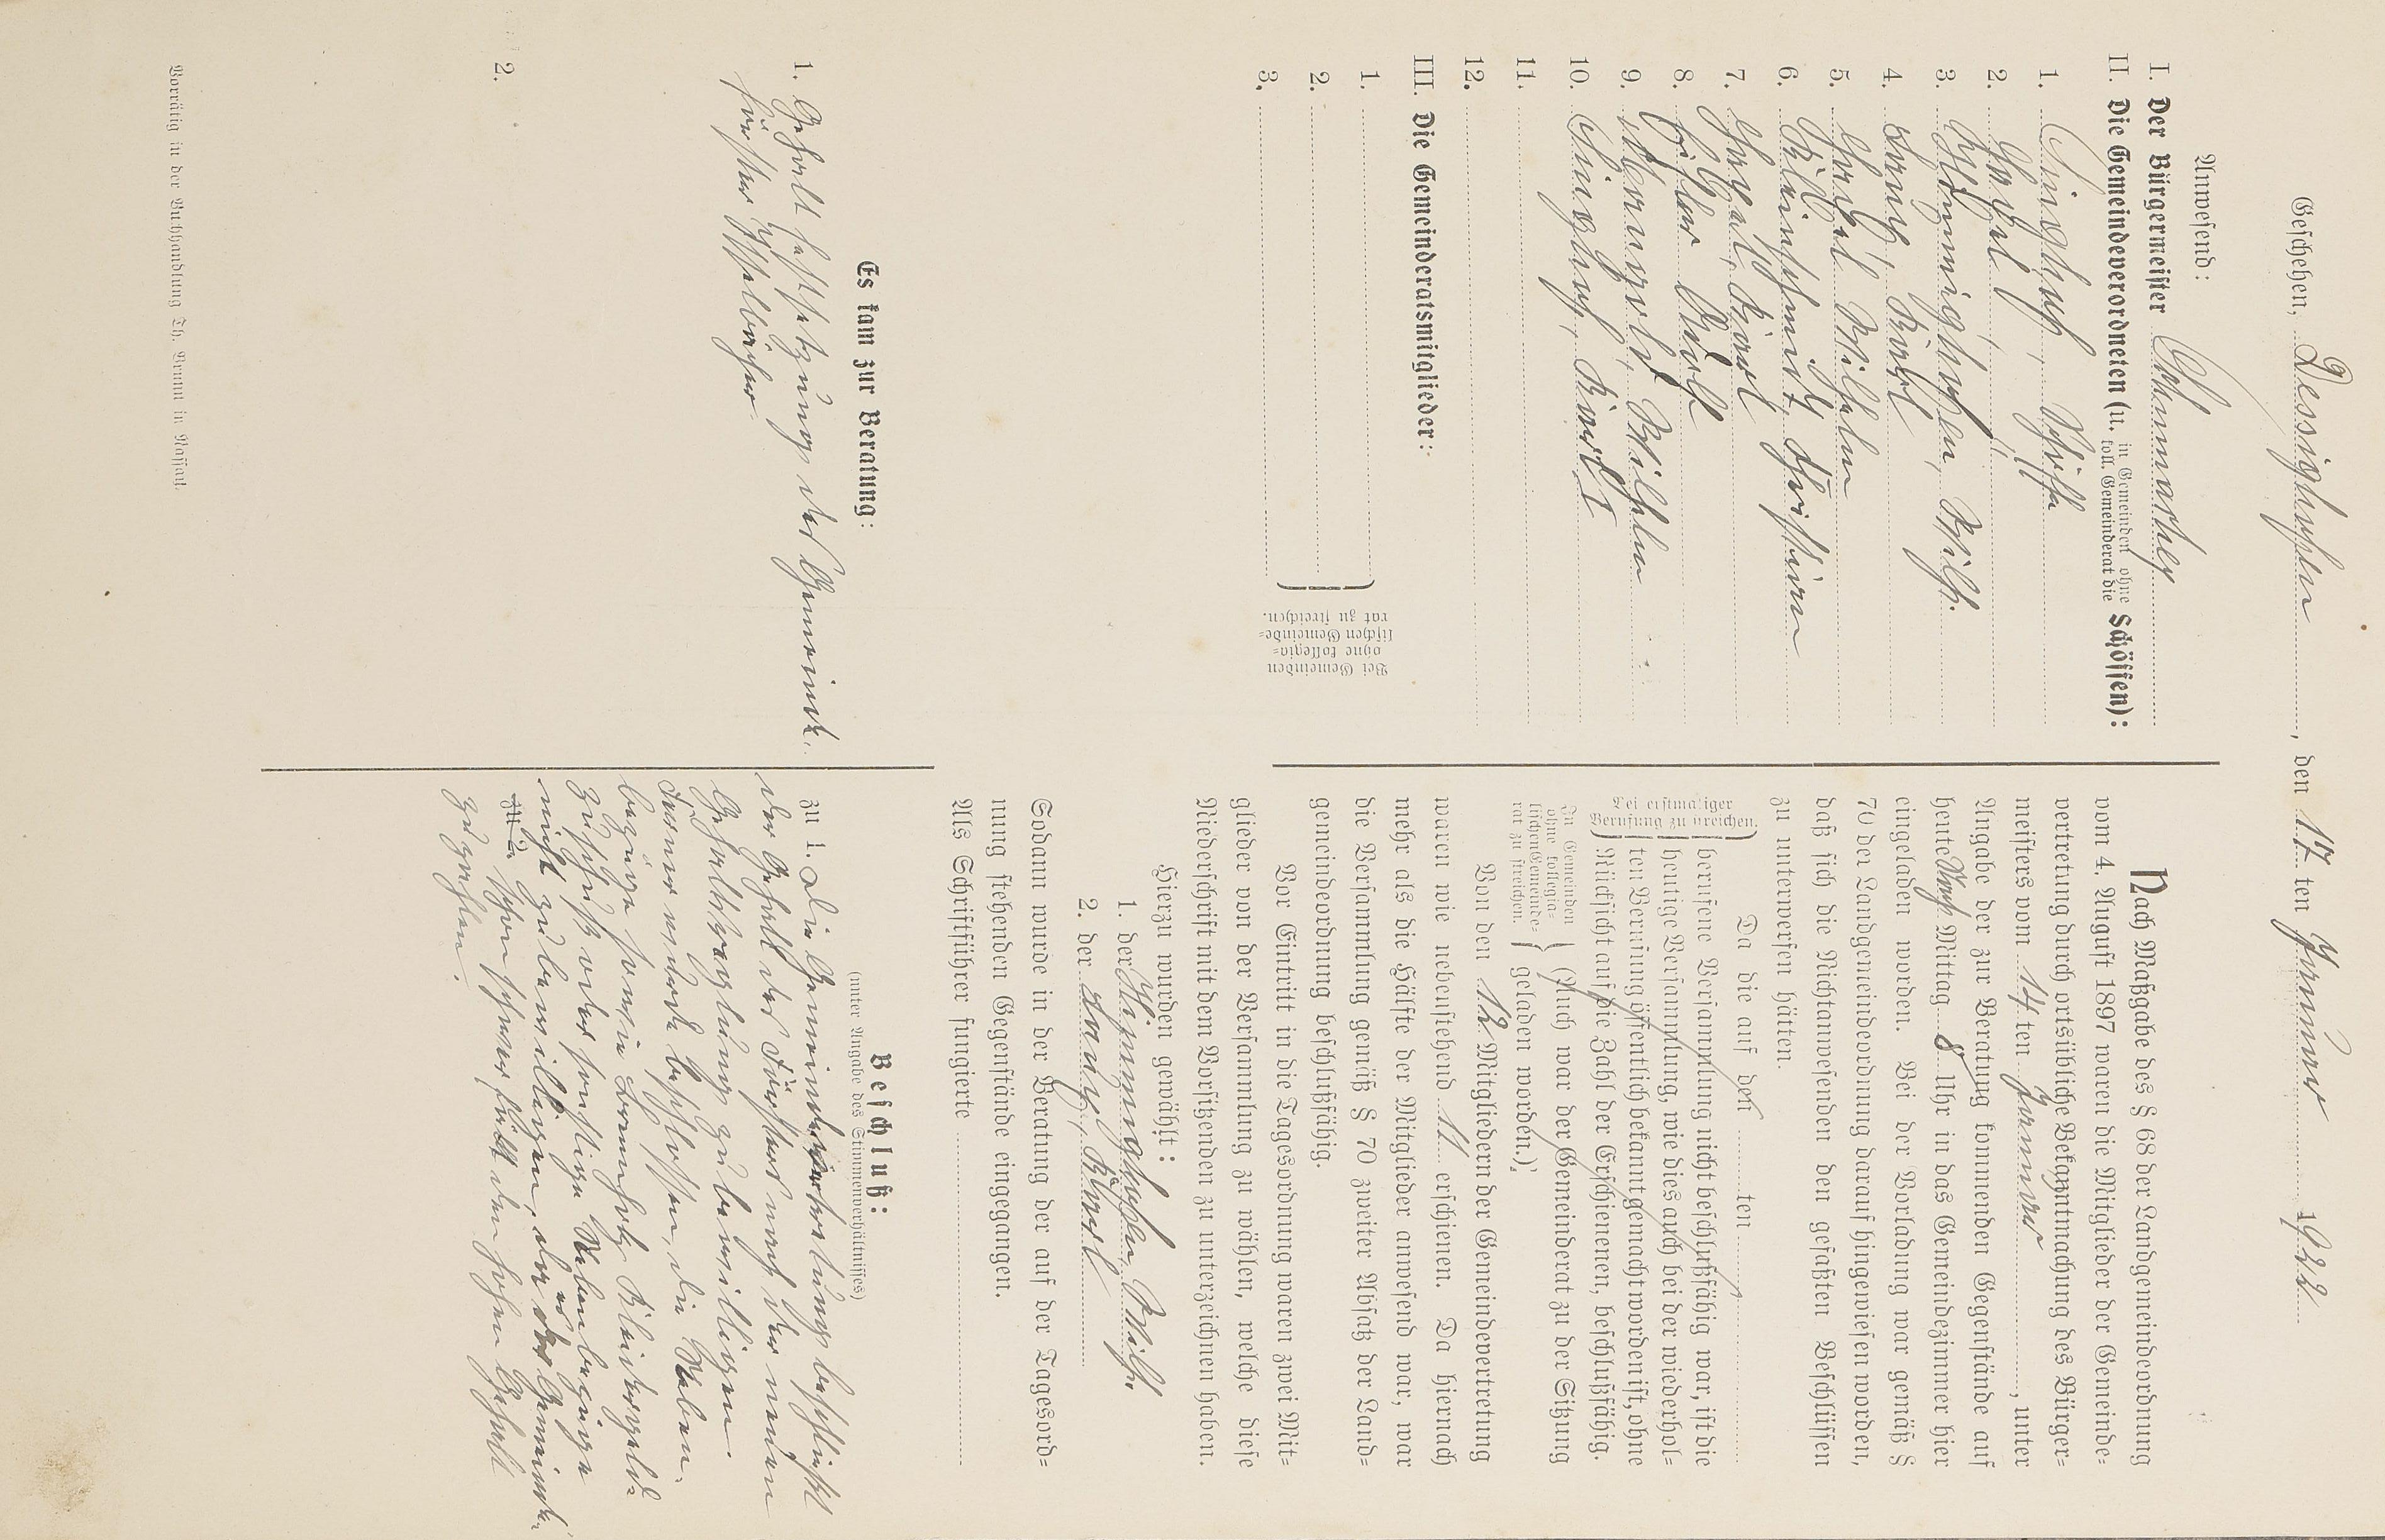 Geschehen, Dessighofen, den 17 ten Januar 1922
Anwesend:
I. Der Bürgermeister
II. Die Gemeindeverordneten (u. in Gemeinden ohne koll. Gemeinderat die Schöffen):
1. Singhof, Schöffe
2. Gorzel, "
3. Himmighofen, Wilh.
4. Lanz, Karl
5. Gorzel Wilhelm
6. Kleinschmidt, Christian
7. Gorzel, Karl
8.
9. Wilhelm
10. Singhof,
11.
12.
III. Die Gemeinderatsmitglieder:
1.
2.
3.
Bei Gemeinden
ohne kollegia-
lischen Gemeinde-
rat zu streichen.
Es kam zur Beratung:
1. Gehalt festsetzung des Gemeinde-
förster
2.
Vorrätig in der Buchhandlung Th. Brunn in Nassau.
Nach Maßgabe des § 68 der Landgemeindeordnung
vom 4. August 1897 waren die Mitglieder der Gemeinde-
vertretung durch ortsübliche Bekanntmachung des Bürger-
meisters vom 14 ten Januar, unter
Angabe der zur Beratung kommenden Gegenstände auf
heute Nach Mittag 8 Uhr in das Gemeindezimmer hier
eingeladen worden. Bei der Vorladung war gemäß §
70 der Landgemeindeordnung darauf hingewiesen worden,
daß sich die Nichtanwesenden den gefaßten Beschlüssen
zu unterwerfen hätten.
Bei erstmaliger
Berufung zu streichen.
Da die auf den ten
berufene Versammlung nicht beschlußfähig war, ist die
heutige Versammlung, wie dies auch bei der wiederhol-
ten Berufung öffentlich bekannt gemacht worden ist, ohne
Rücksicht auf die Zahl der Erschienenen, beschlußfähig.
In Gemeinden
ohne kollegia-
lischen Gemeinde-
rat zu streichen.
(Auch war der Gemeinderat zu der Sitzung
geladen worden.)
Von den 12 Mitgliedern der Gemeindevertretung
waren wie nebenstehend 11 erschienen. Da hiernach
mehr als die Hälfte der Mitglieder anwesend war, war
die Versammlung gemäß § 70 zweiter Absatz der Land-
gemeindeordnung beschlußfähig.
Vor Eintritt in die Tagesordnung waren zwei Mit-
glieder von der Versammlung zu wählen, welche diese
Niederschrift mit dem Vorsitzenden zu unterzeichnen haben.
Hierzu wurden gewählt:
1. der Himmighofen, Wilh.
2. der Lanz, Karl
Sodann wurde in der Beratung der auf der Tagesord-
nung stehenden Gegenstände eingegangen.
Als Schriftführer fungierte
Beschluß:
(unter Angabe des Stimmenverhältnisses)
zu 1. Die Gemeindevertretung beschließt
der Gehalt des Försters nach der neuen
Gehaltsreglung zu bewilligen.
Ferner wurde beschlossen, die Neben-
bezüge sowie Brennholz Kleidergeld-
zuschuß oder sonstige Nebenbezüge
nicht zu bewilligen, da es der Gemeinde
zu 2. schon schwer fällt den hohen Gehalt
zu zahlen.